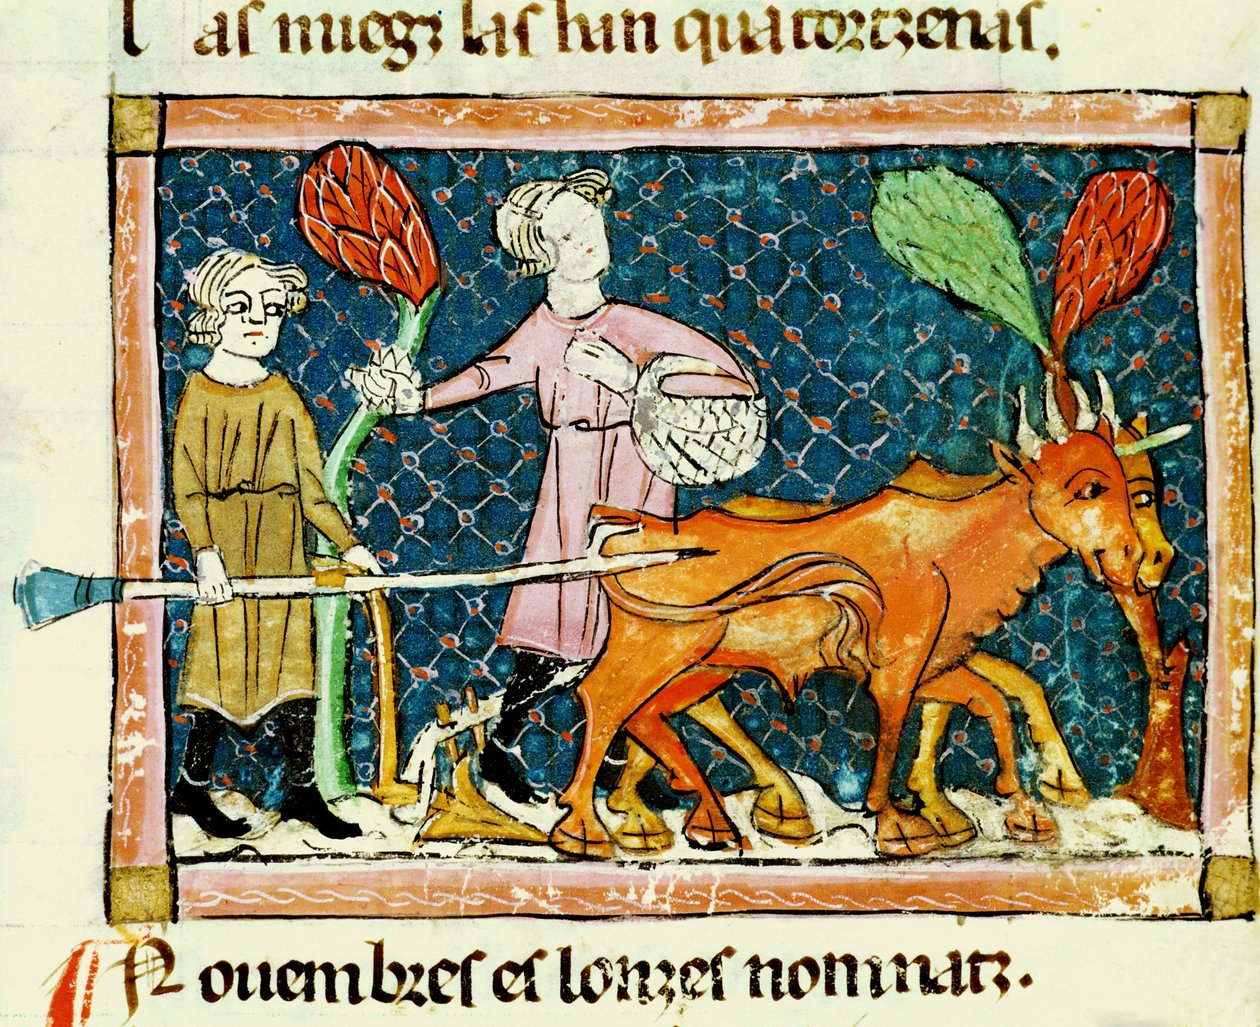 l as nuegz las han quatortzenas.
Nouembres es lonzes nominatz.